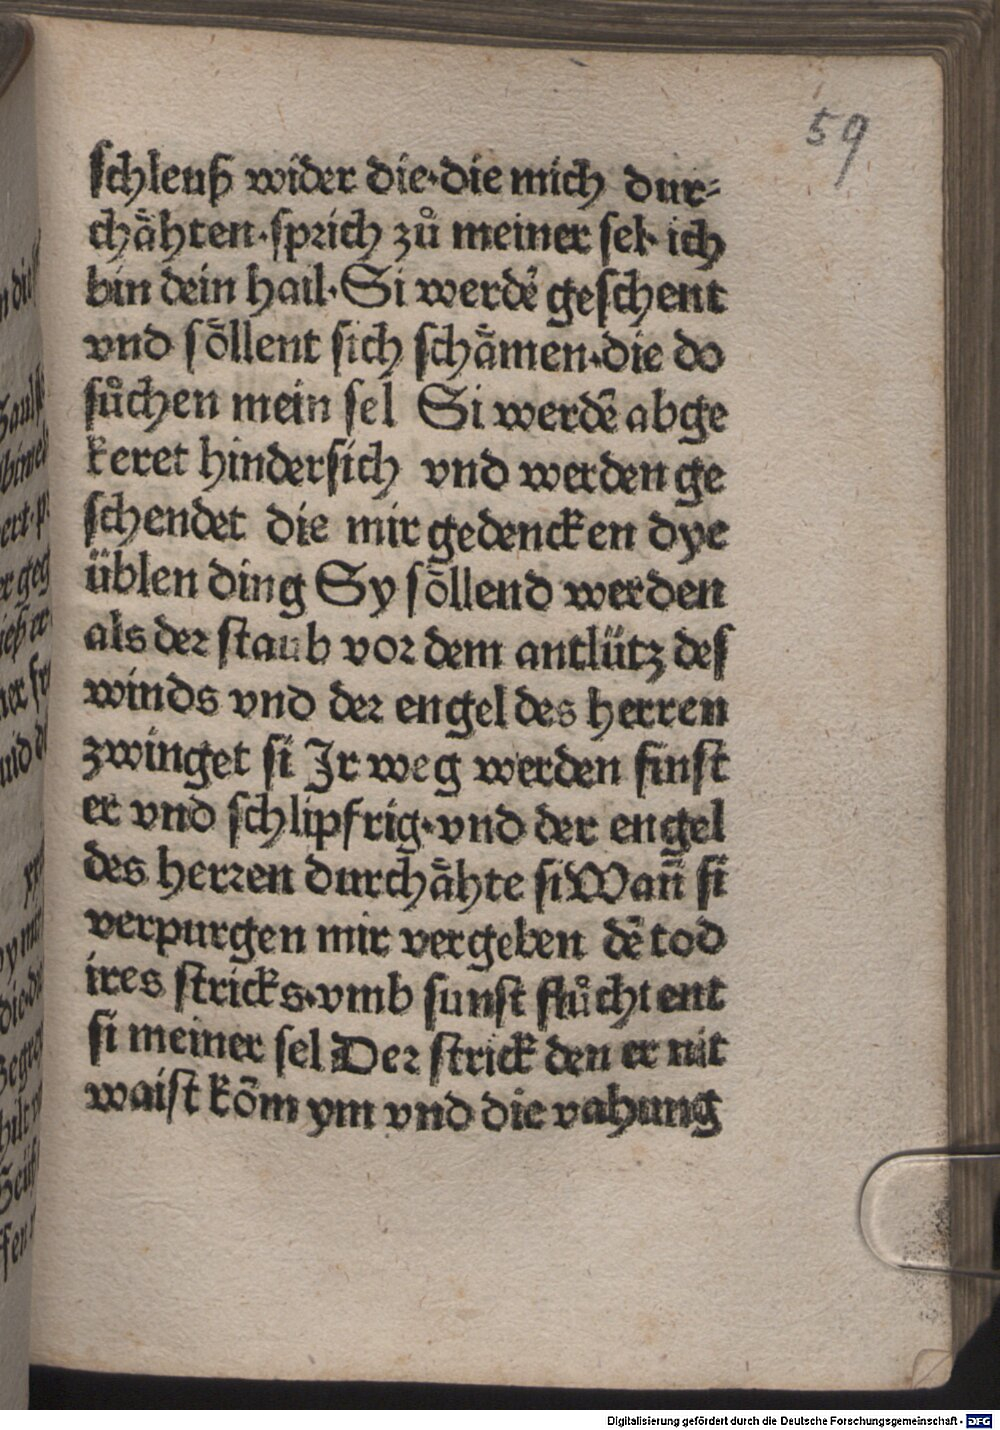 59
schleuß wider die·die mich dur⸗
chåhten·sprich zů meiner sel· ich
bin dein hail·Si werdē geschent
vnd sőllent sich schåmen·die do
sůchen mein sel Si werdē abge
keret hindersich vnd werden ge
schendet die mir gedencken dye
üblen ding Sy sőllend werden
als der staub vor dem antlütz des
winds vnd der engel des herren
zwinget si Jr weg werden finst
er vnd schlipfrig·vnd der engel
des herren durchåhte si Wañ si
verpurgen mir vergeben dē tod
ires stricks·vmb sunst flůchtent
si meiner sel Der strick den er nit
waist kőm ym vnd die vahung
Digitalisierung gefördert durch die Deutsche Forschungsgemeinschaft - DFG